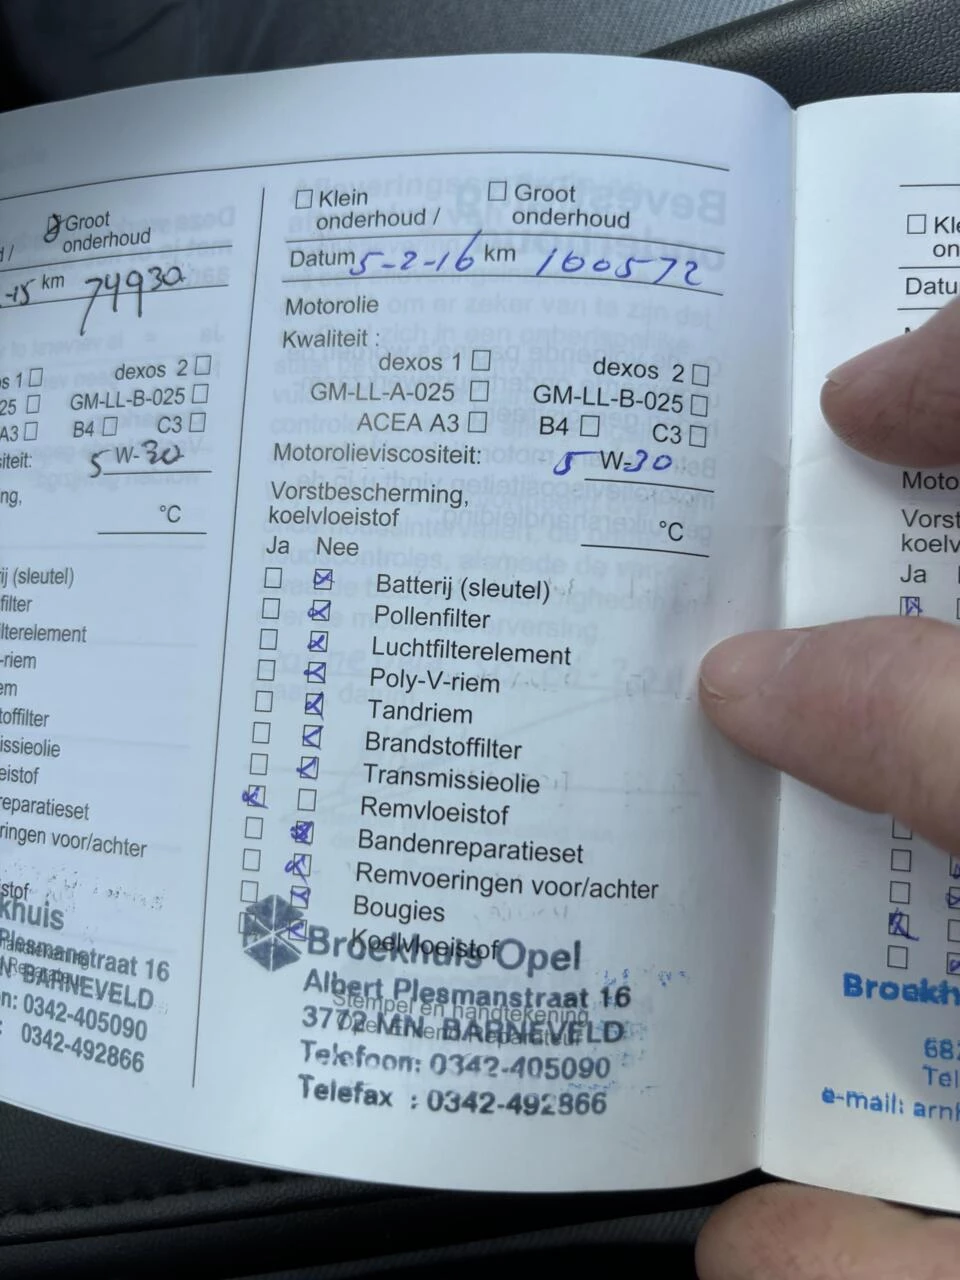 Groot
onderhoud
-15 km 74930
s 1 dexos 2
25 GM-LL-B-025
A3 B4 C3
siteit: 5 W-30
ng,
°C
ij (sleutel)
filter
lterelement
-riem
em
toffilter
issieolie
eistof
reparatieset
ringen voor/achter
stof
khuis
Plesmanstraat 16
N BARNEVELD
n: 0342-405090
: 0342-492866
Klein onderhoud / Groot onderhoud
Datum 5-2-16 km 100572
Motorolie
Kwaliteit :
dexos 1 dexos 2
GM-LL-A-025 GM-LL-B-025
ACEA A3 B4 C3
Motorolieviscositeit: 5 W-30
Vorstbescherming,
koelvloeistof °C
Ja Nee
Batterij (sleutel)
Pollenfilter
Luchtfilterelement
Poly-V-riem
Tandriem
Brandstoffilter
Transmissieolie
Remvloeistof
Bandenreparatieset
Remvoeringen voor/achter
Bougies
Koelvloeistof
Broekhuis Opel
Albert Plesmanstraat 16
Stempel en handtekening
3772 MN BARNEVELD
Opel Erkend Reparateur
Telefoon: 0342-405090
Telefax : 0342-492866
Kle
on
Datu
Moto
Vorst
koelv
Ja
Broekh
682
Tel
e-mail: arn